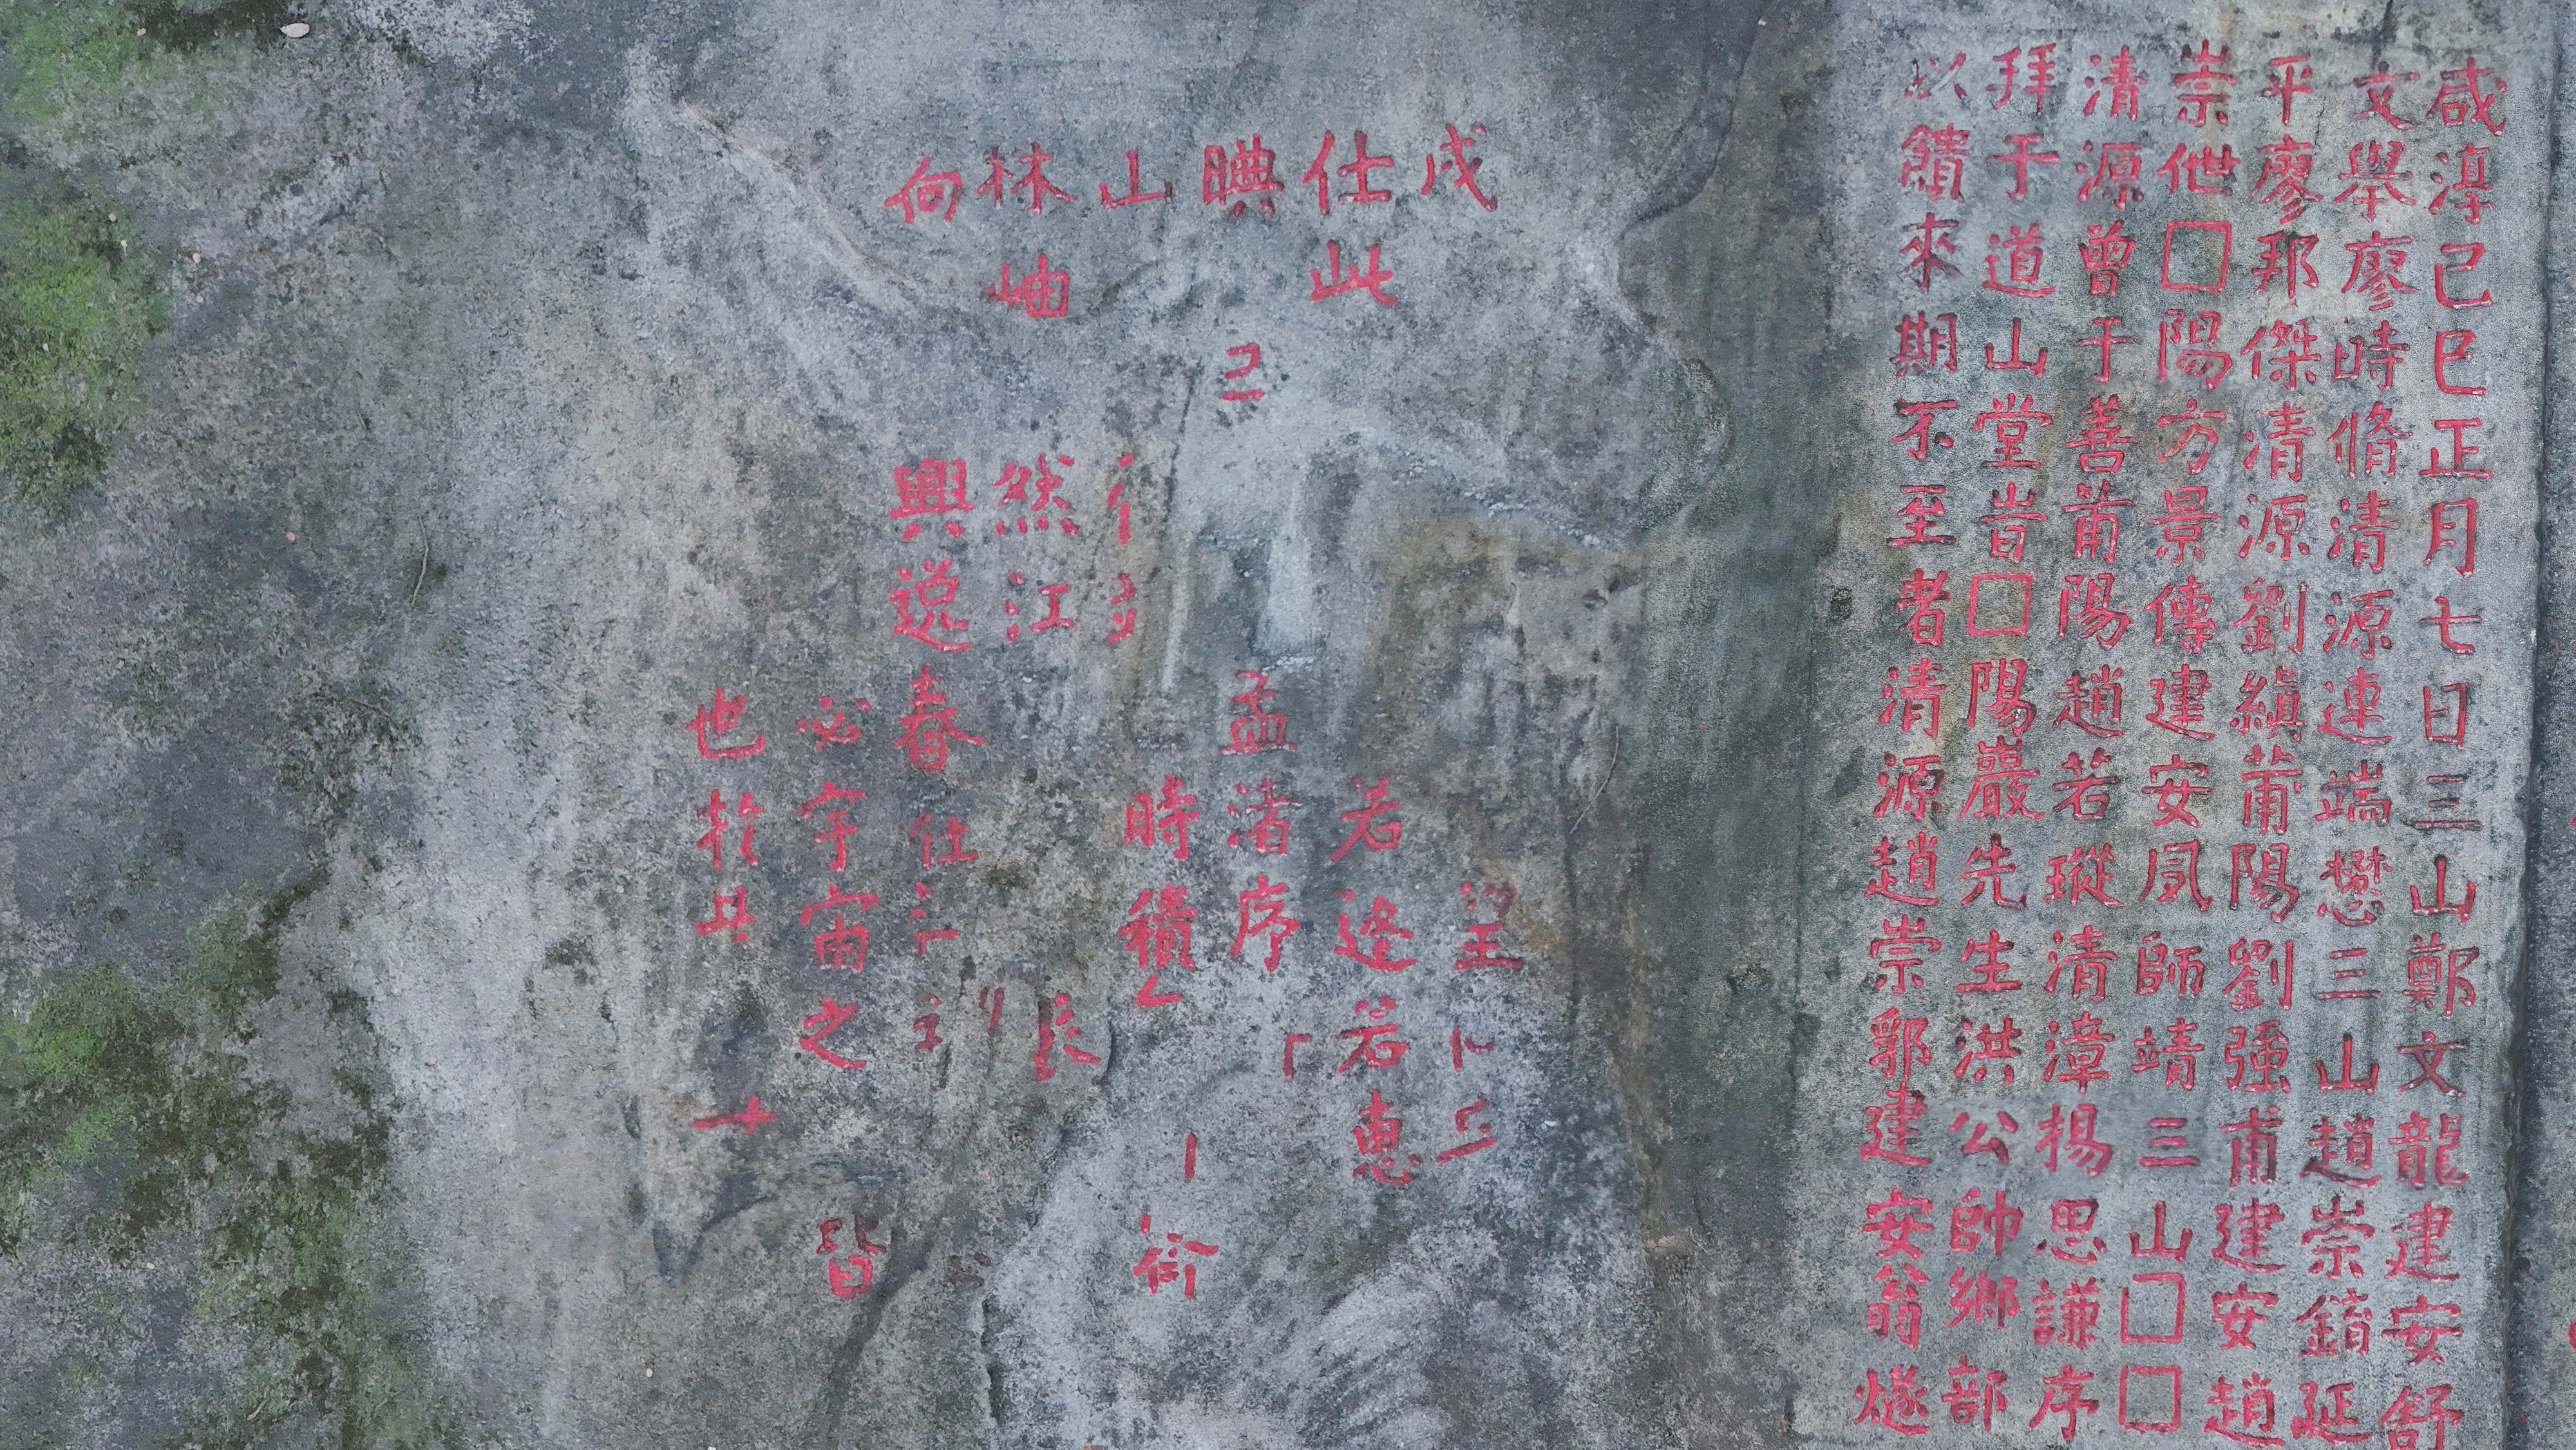 咸淳己巳正月七日三山鄭文龍建安舒
文舉廖時脩清源連端懋三山趙崇鐼延
平廖邦傑清源劉縝莆陽劉强甫建安趙
崇伳□陽方景傳建安夙師靖三山□□
清源曾于善莆陽趙若瑽清漳楊思謙序
拜于道山堂旹□陽巖先生洪公帥鄉部
以饋來期不至者清源趙崇郛建安翁燧
戌
仕此 若逄若惠
晪 己 孟渚序
山 時積
林岫 然江
向 興逸春仕
必宇宙之 皆
也於